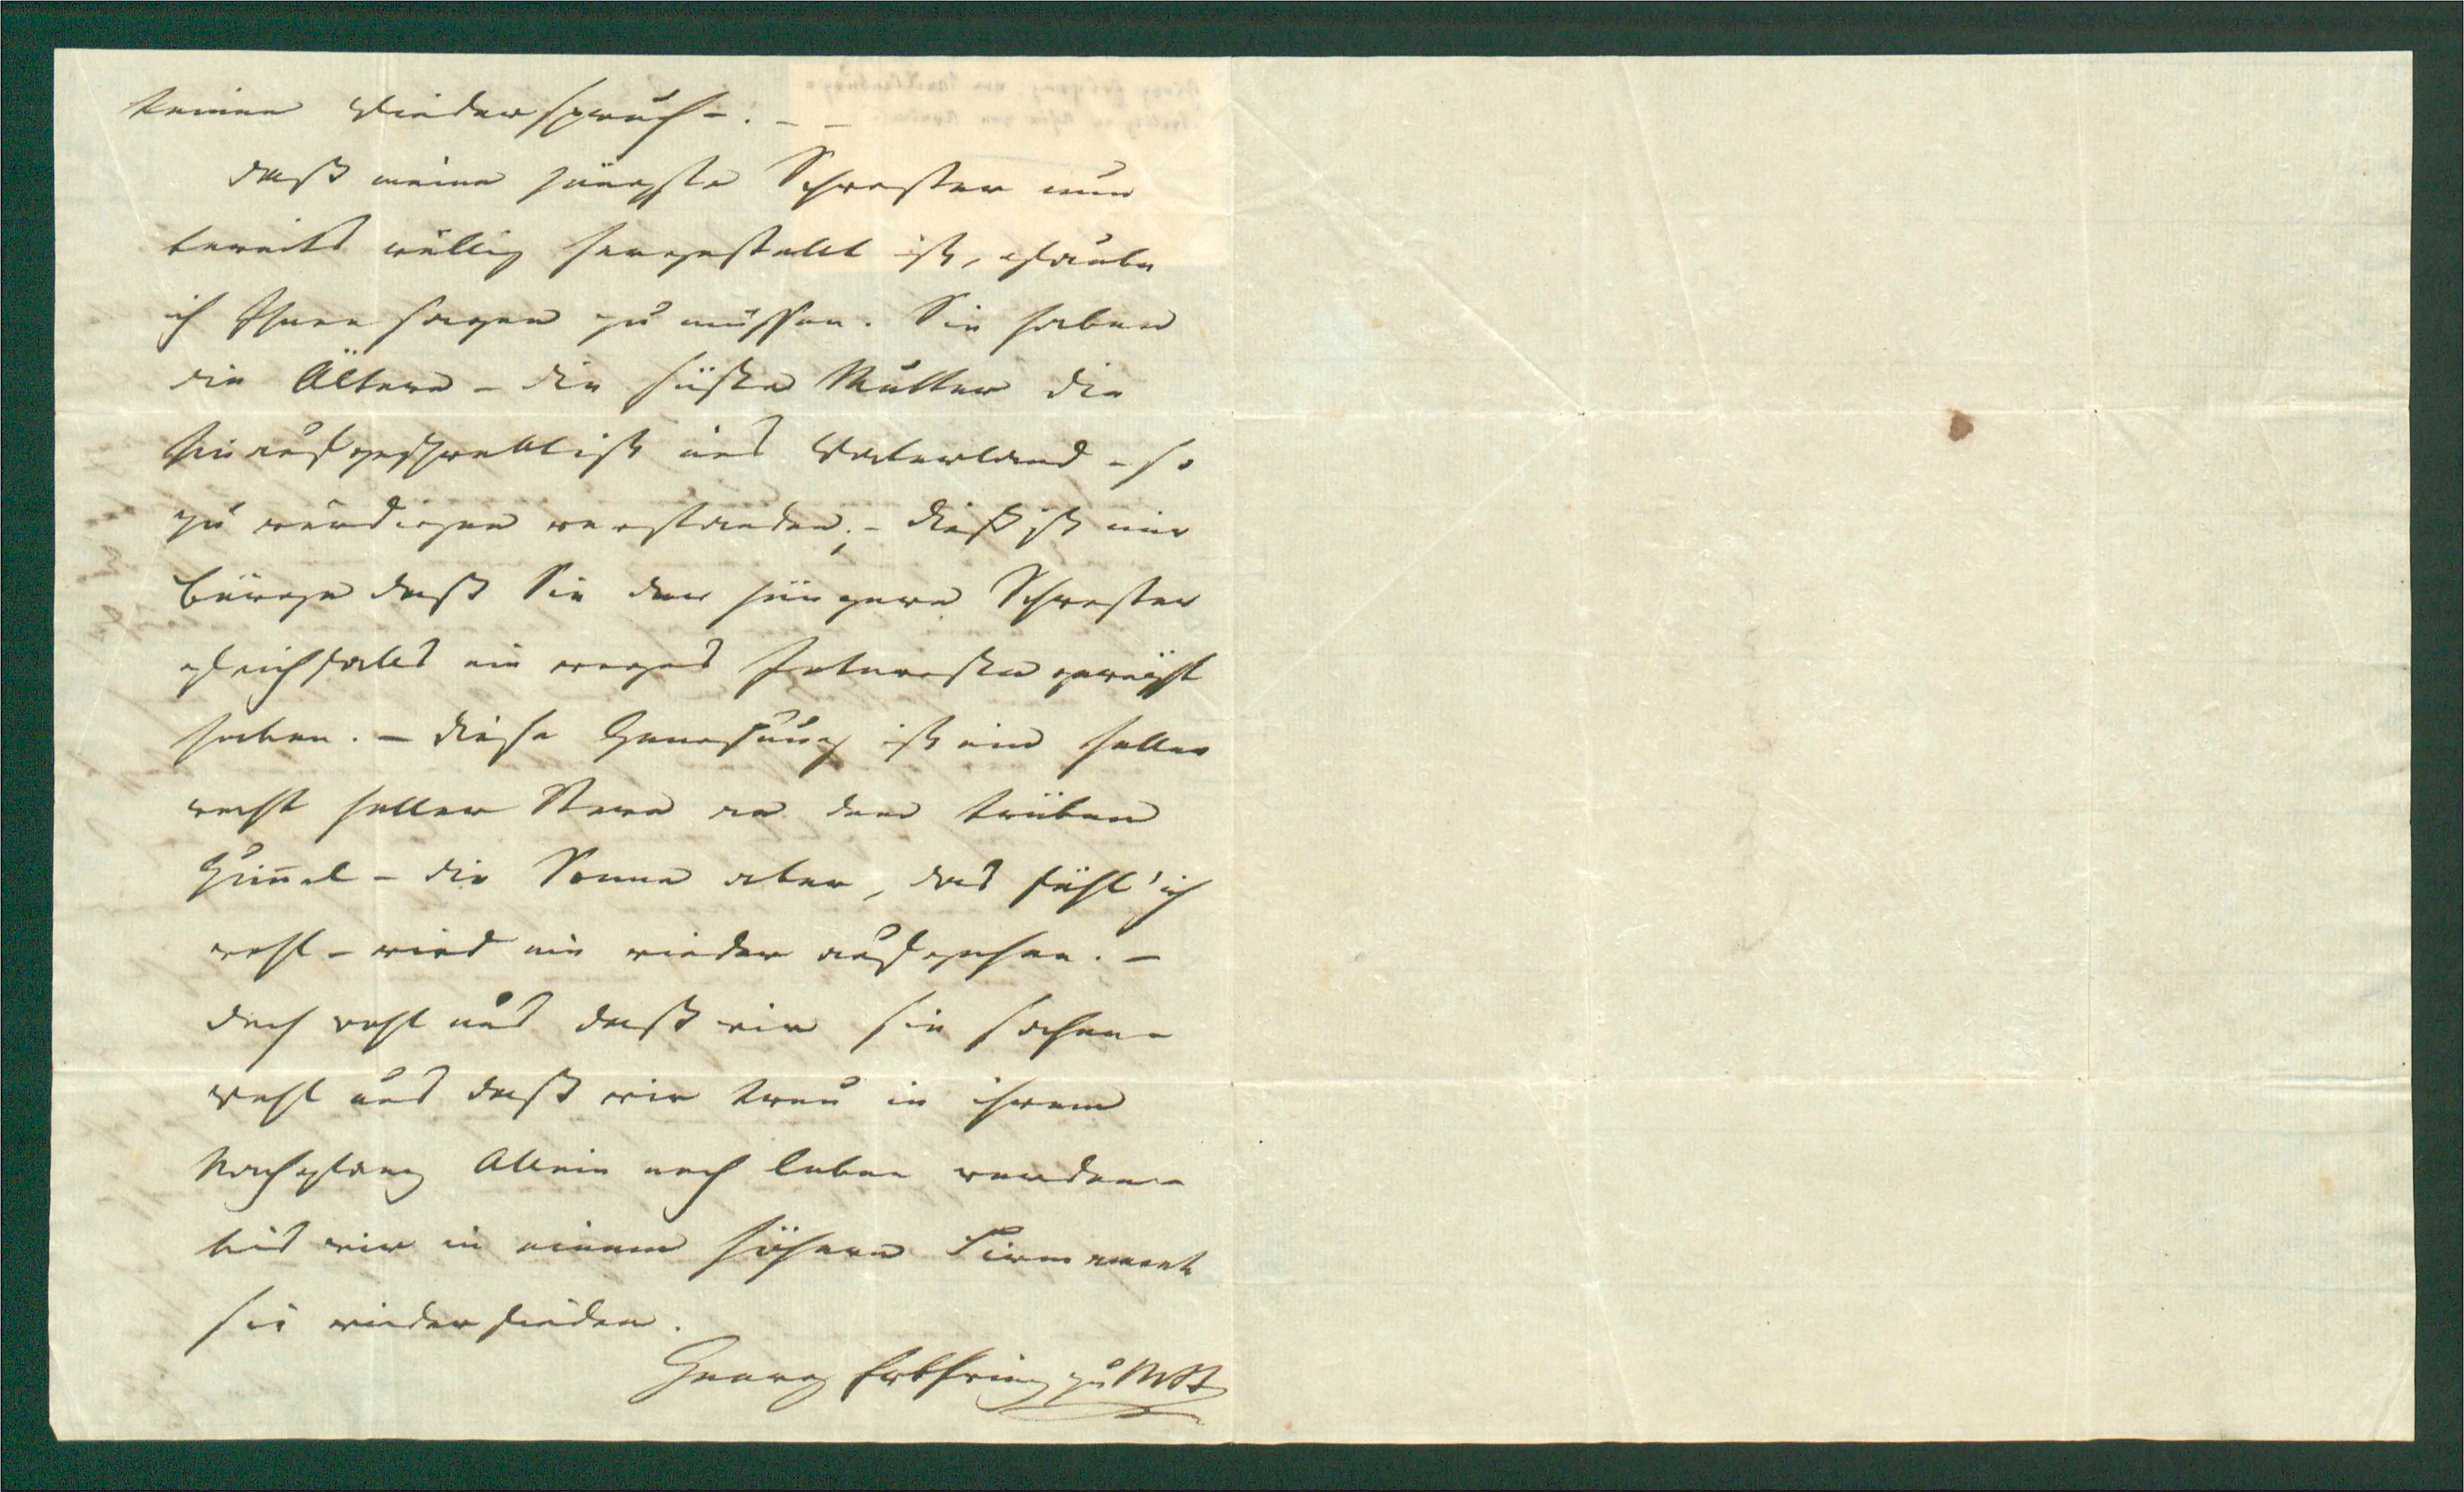 keinen Wiederspruch. – –
Daß meine jüngste Schwester nun
bereits völlig hergestellt ist, glaube
ich Ihnen sagen zu müssen. Sie haben
die Ältere – die süße Mutter die
hinaufgeschwebt ist ins Vaterland – so
zu würdigen verstanden; – dieß ist mir
Bürge daß Sie der jüngern Schwester
gleichfalls ein reges Interesse geweiht
haben. – Diese Genesung ist ein heller
recht heller Stern an dem trüben
Himmel – die Sonne aber, das fühl' ich
wohl – wird nie wieder aufgehen. –
Doch wohl uns daß wir sie sahen –
wohl uns daß wir treu in ihrem
Nachglanz Allein noch leben werden –
bis wir in einem höhern Firmament
sie wieder finden.
Georg Erbprinz zu MSt